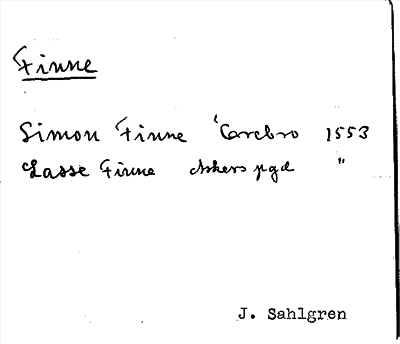 Finne
Simon Finne Örebro 1553
Lasse Finne Askers pgd "
J. Sahlgren